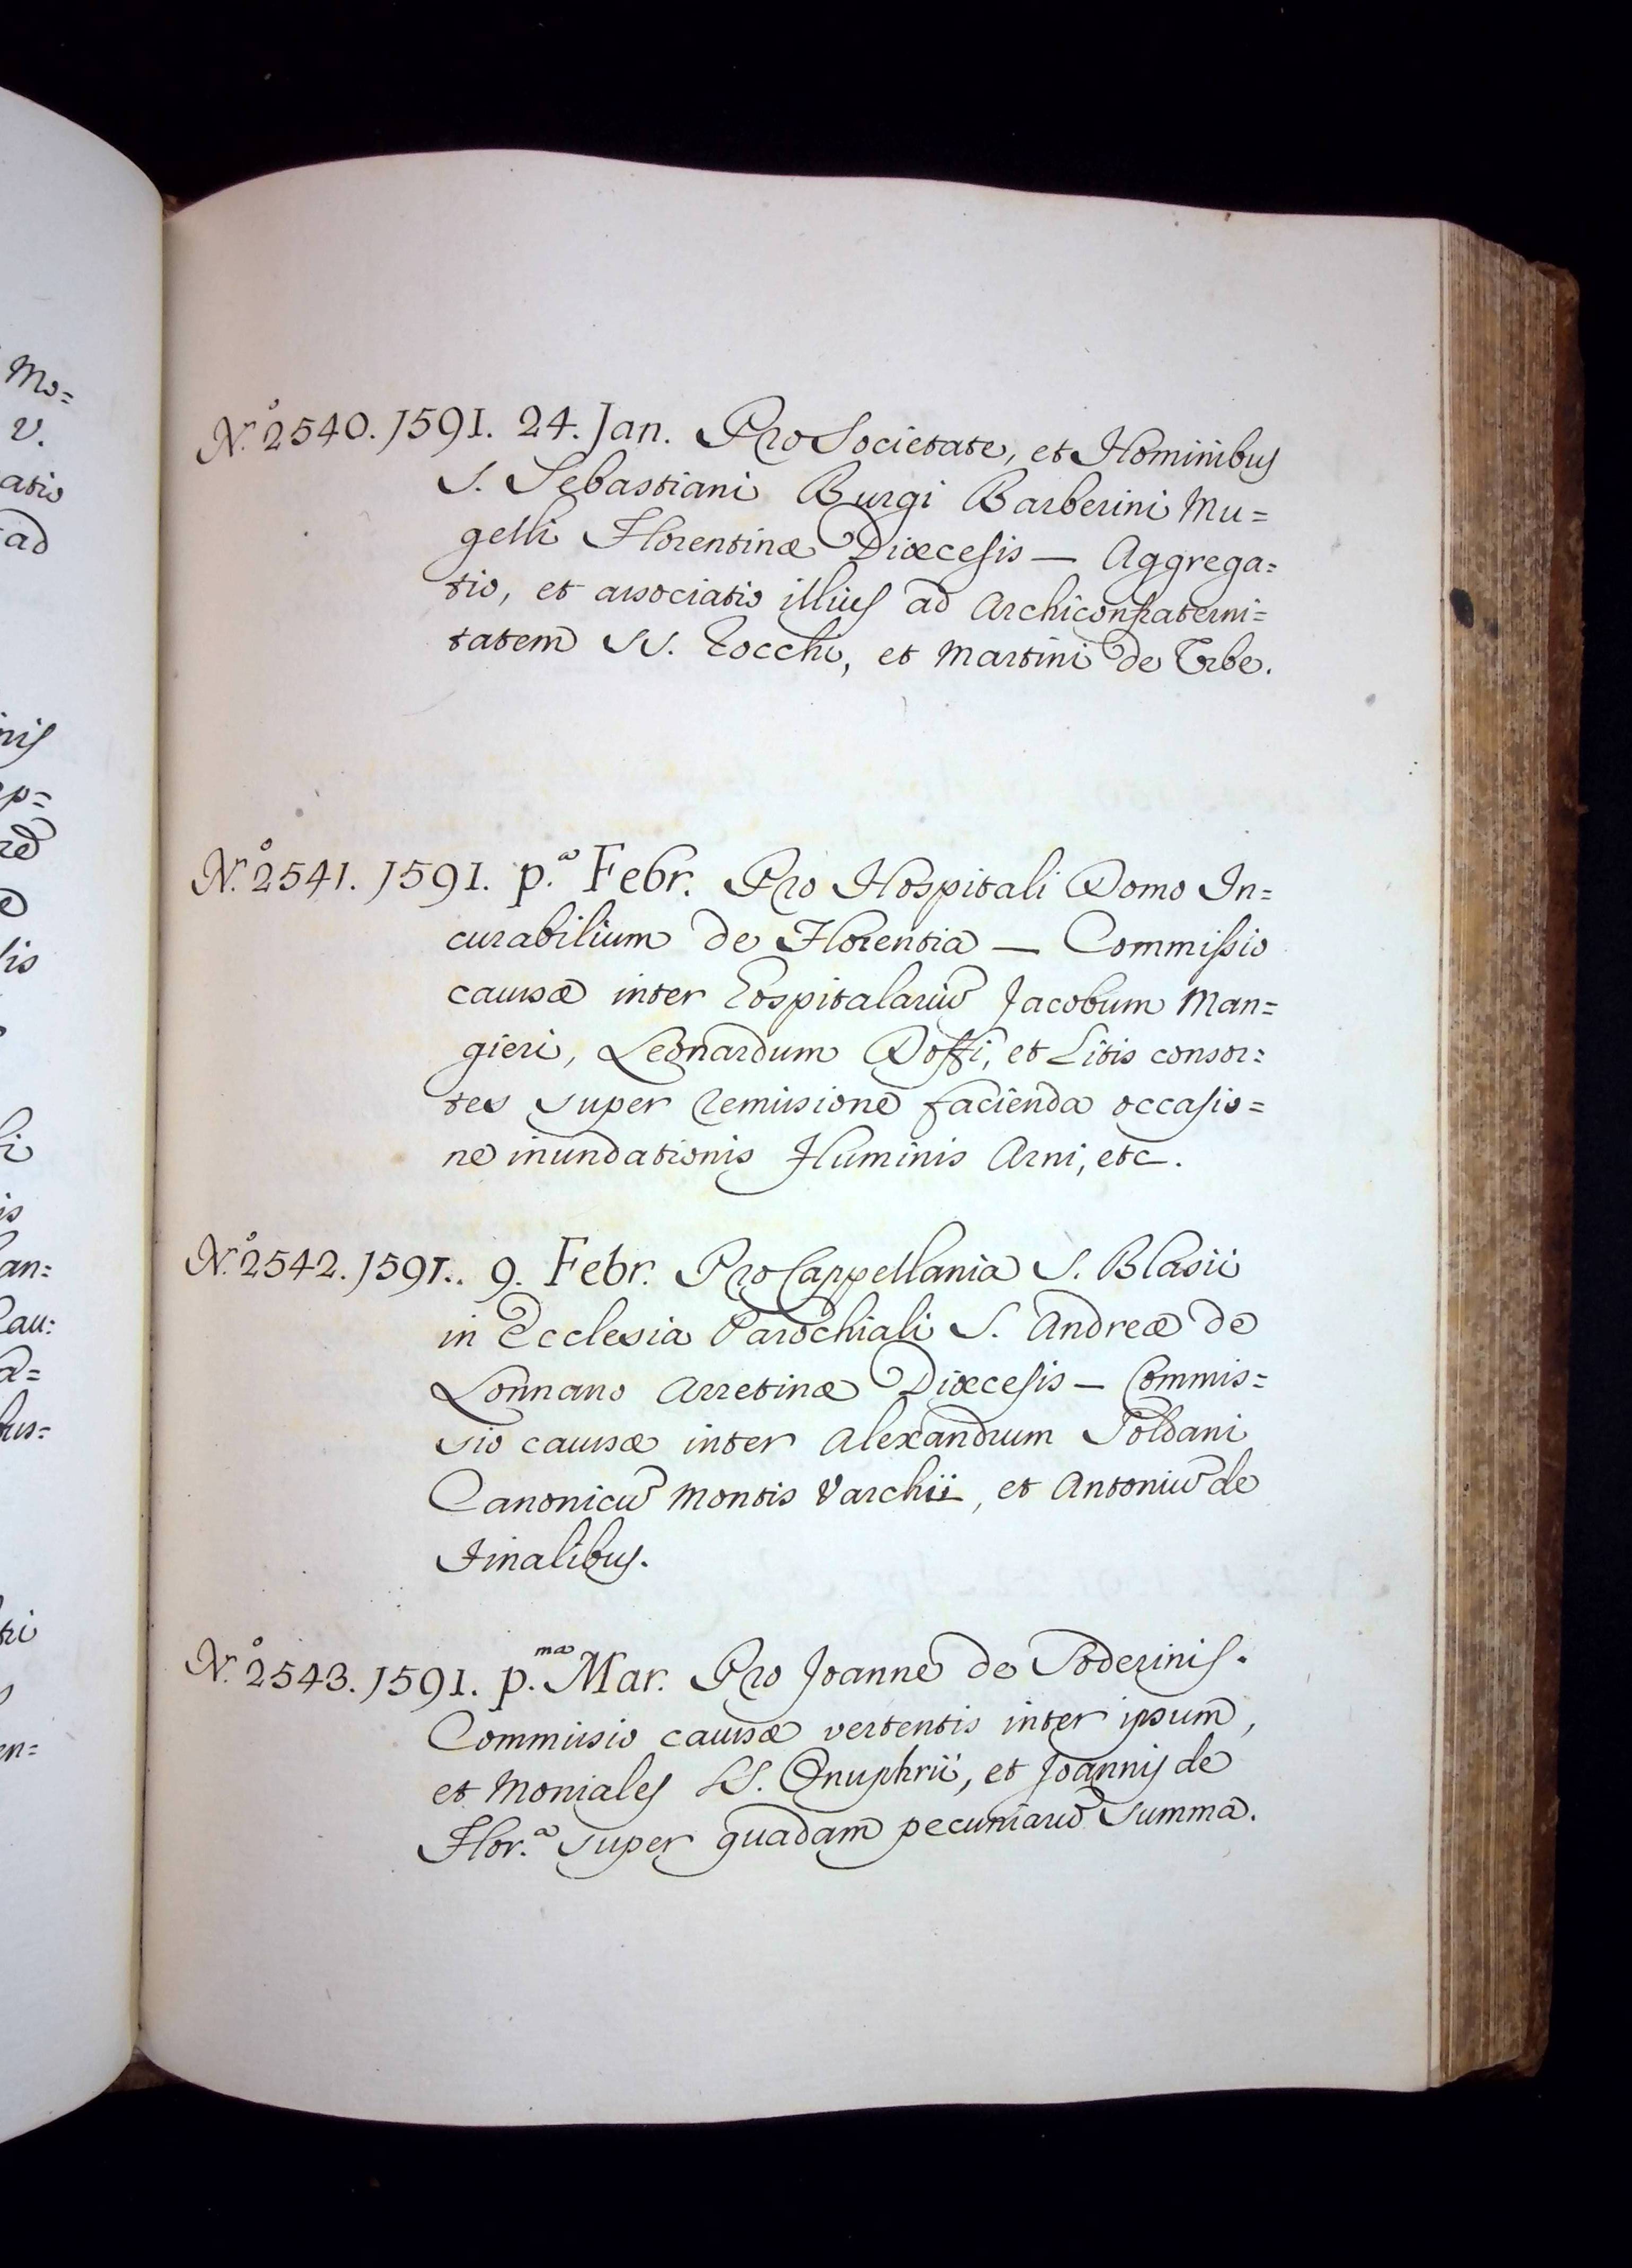 Mo=
V.
atio
ad
nis
ap=
red
lis
an=
Cau:
a=
bus=
tri
en=
N.º 2540. 1591. 24. Jan. Pro Societate, et Hominibus
S. Sebastiani Burgi Barberini Mu=
gelli Florentinæ Diœcesis — Aggrega=
tio, et associatio illius ad Archiconfraterni=
tatem SS. Rocchi, et Martini de Urbe.
N.º 2541. 1591. p.ª Febr. Pro Hospitali Domo In=
curabilium de Florentia — Commissio
causæ inter Hospitalariũ Jacobum Man=
gieri, Leonardum Doffi, et Litis consor=
tes super remissione facienda occasio=
ne inundationis Fluminis Arni, etc.
N.º 2542. 1591.. 9. Febr. Pro Cappellania S. Blasii
in Ecclesia Parochiali S. Andreæ de
Lonnano Arretinæ Diœcesis — Commis=
sio causæ inter Alexandrum Soldani
Canonicũ Montis Varchii, et Antoniũ de
Finalibus.
N.º 2543. 1591. p.ma Mar. Pro Joanne de Soderinis.
Commissio causæ vertentis inter ipsum,
et Moniales SS. Onuphrii, et Joannis de
Flor.ª super quadam pecuniarũ summa.